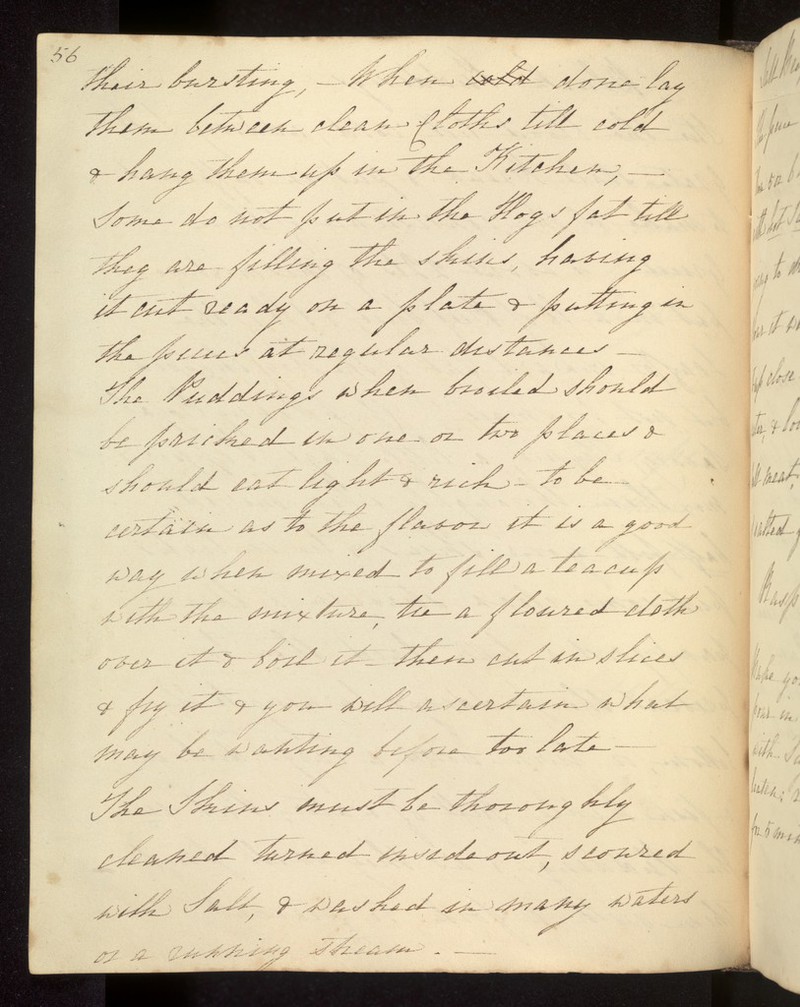 56
their bursting, – When cold done lay
them between clean Cloths till cold
& hang them up in the Kitchen, —
Some do not put in the Hogs fat till
they are filling the skins, having
it cut ready on a plate & putting in
the pieces at regular distances –
The Puddings when broiled should
be pricked in one or two places &
should eat light & rich – to be
certain as to the flavor it is a good
way when mixed to fill a teacup
with the mixture, tie a floured cloth
over it & boil it – then cut in slices
& fry it & you will ascertain what
may be wanting before too late –
The Skins must be thoroughly
cleaned turned inside out, scoured
with Salt, & washed in many waters
or a running stream. —